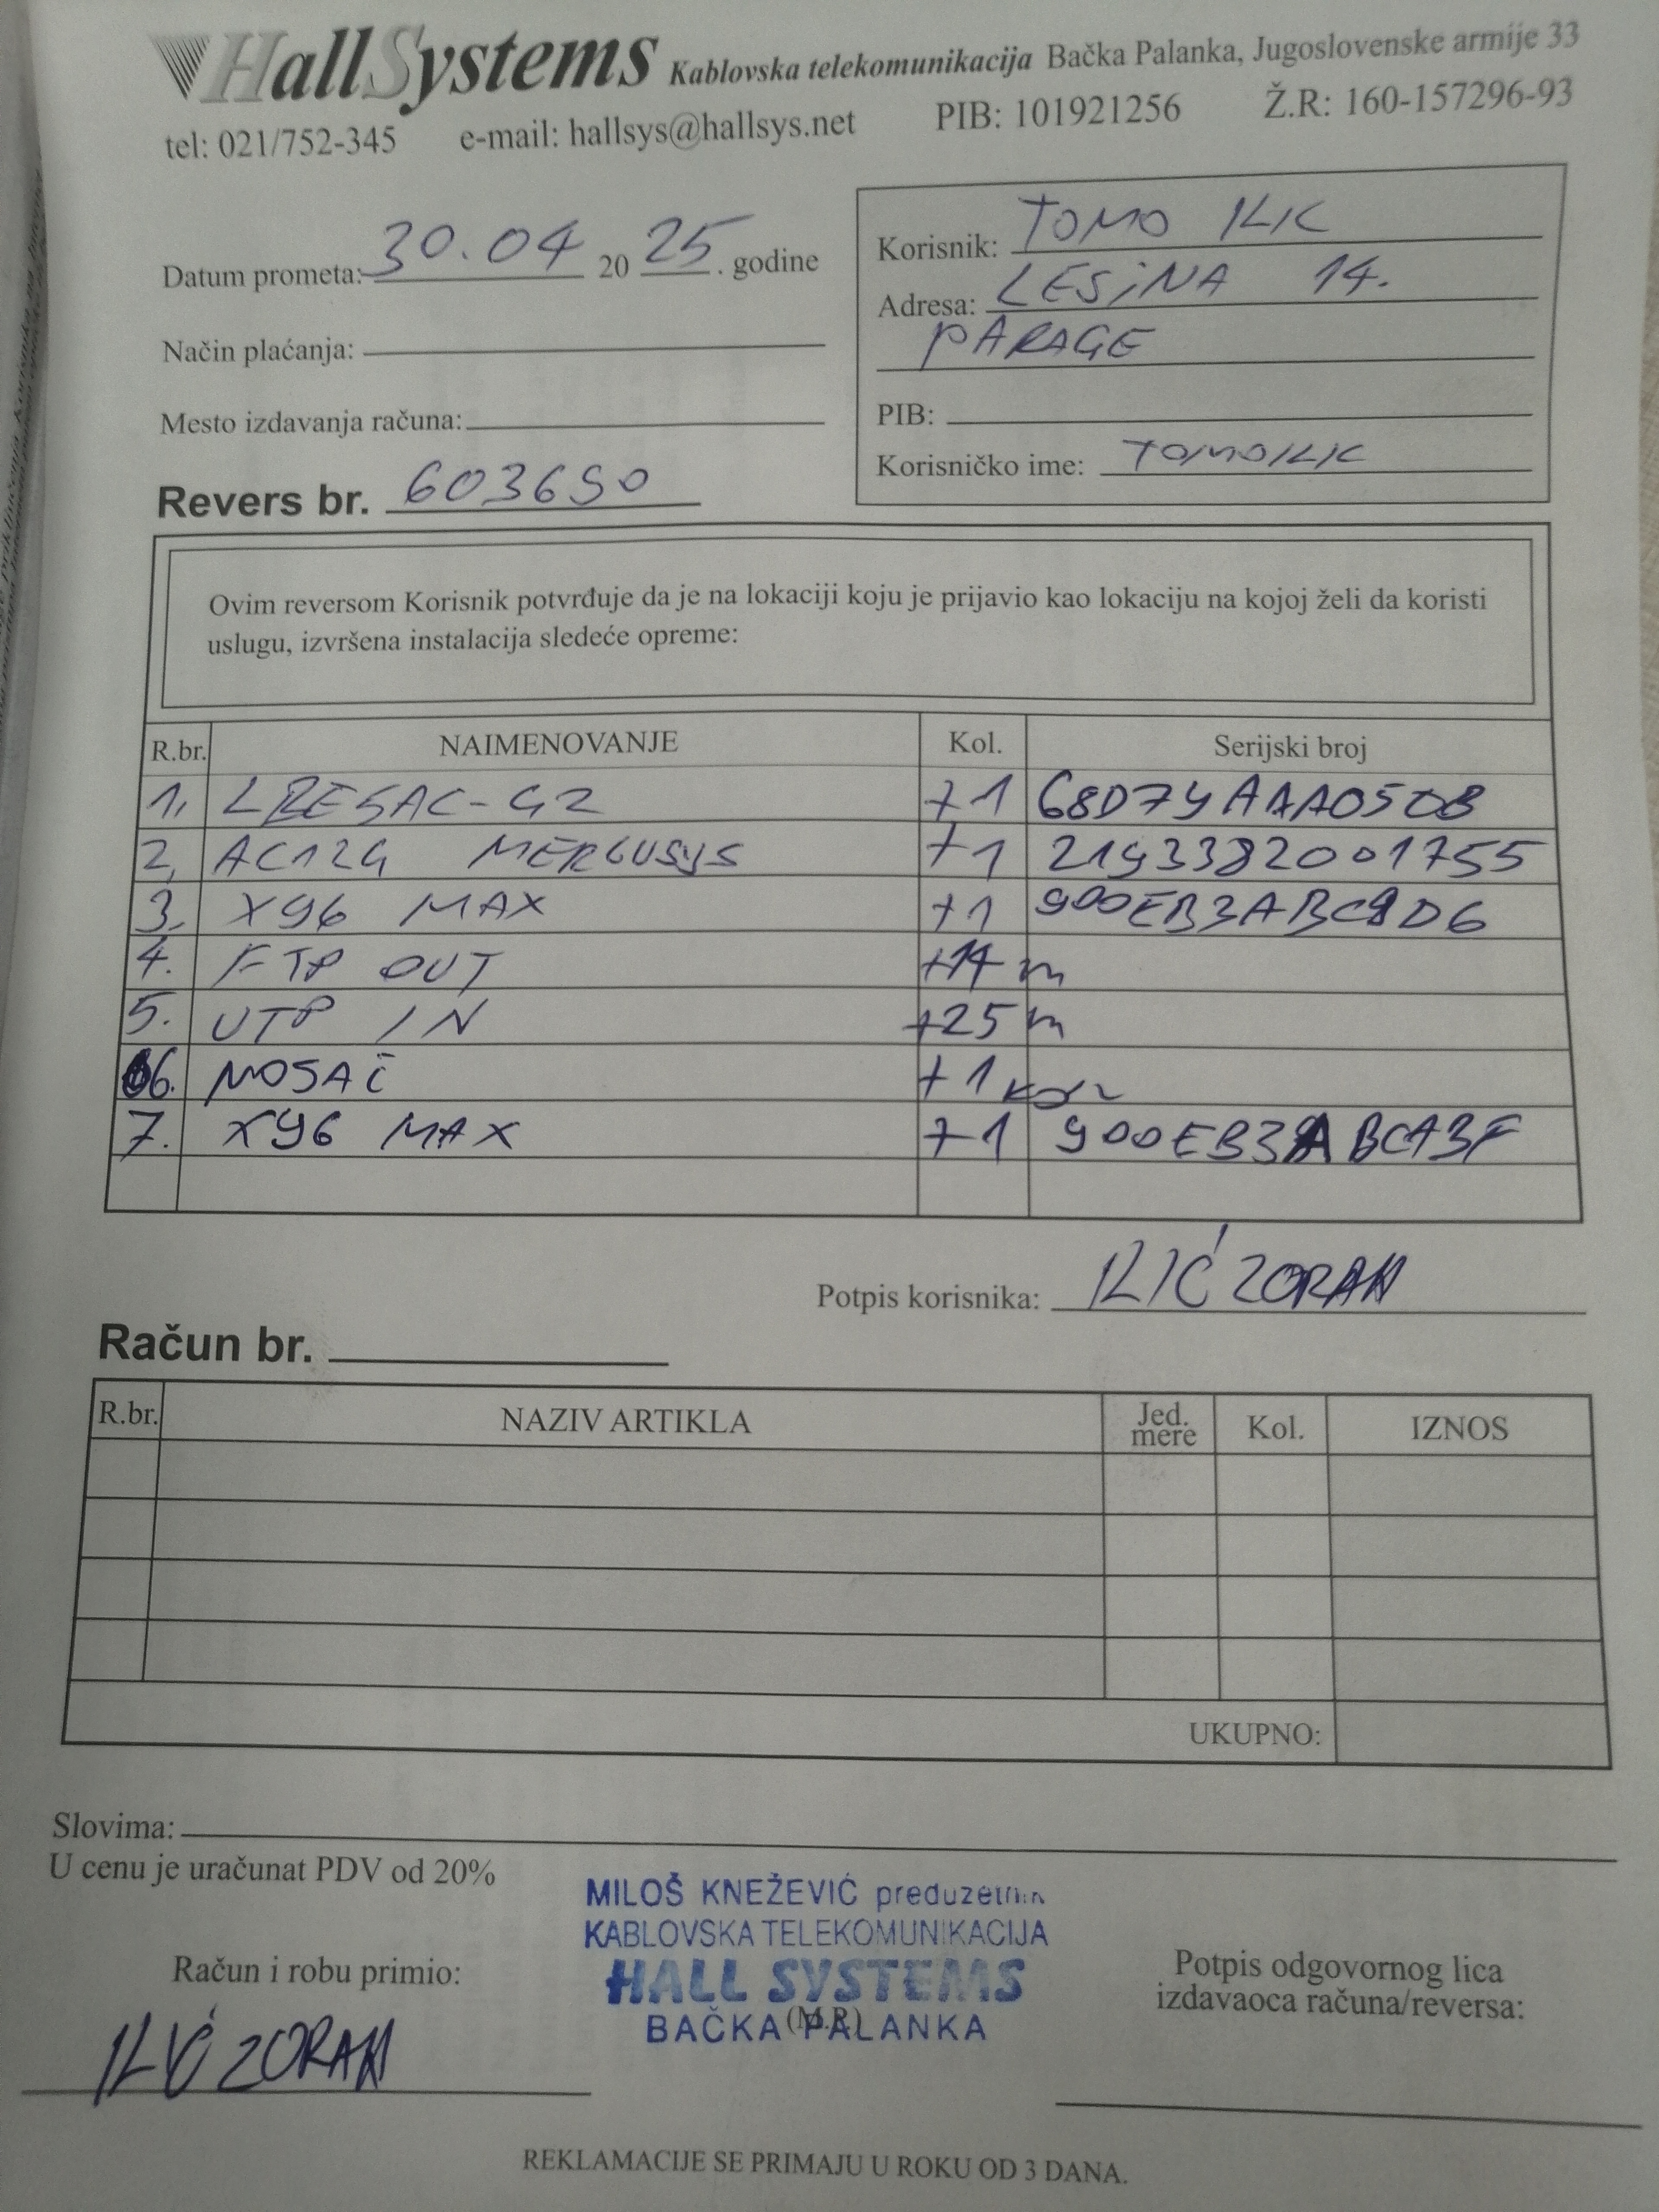 HallSystems Kablovska telekomunikacija Bačka Palanka, Jugoslovenske armije 33
tel: 021/752-345 e-mail: hallsys@hallsys.net PIB: 101921256 Ž.R: 160-157296-93
Datum prometa: 30.04 2025. godine
Način plaćanja:
Mesto izdavanja računa:
Revers br. 603690
Korisnik: TOMO ILIC
Adresa: LESiNA 14.
PARAGE
PIB:
Korisničko ime: TOMOILIC
Ovim reversom Korisnik potvrđuje da je na lokaciji koju je prijavio kao lokaciju na kojoj želi da koristi
uslugu, izvršena instalacija sledeće opreme:
R.br. NAIMENOVANJE Kol. Serijski broj
1. LBE5AC-G2 +1 68D79AAA050B
2. AC12G MERCUSYS +1 2193382001755
3. X96 MAX +1 900EB3ABC9D6
4. FTP OUT +14 m
5. UTP IN +25 m
6. NOSAČ +1 kom
7. X96 MAX +1 900EB3ABCA3F
Potpis korisnika: ILIĆ ZORAN
Račun br.
R.br. NAZIV ARTIKLA Jed. mere Kol. IZNOS
UKUPNO:
Slovima:
U cenu je uračunat PDV od 20%
MILOŠ KNEŽEVIĆ preduzetnik
KABLOVSKA TELEKOMUNIKACIJA
HALL SYSTEMS
BAČKA PALANKA
(M.P.)
Račun i robu primio:
ILIĆ ZORAN
Potpis odgovornog lica
izdavaoca računa/reversa:
REKLAMACIJE SE PRIMAJU U ROKU OD 3 DANA.